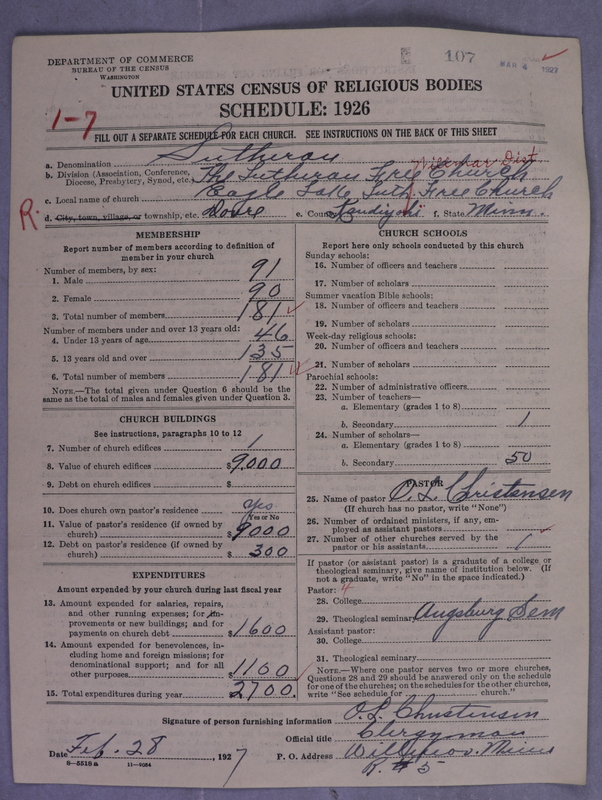 DEPARTMENT OF COMMERCE
BUREAU OF THE CENSUS
WASHINGTON
107
1927
UNITED STATES CENSUS OF RELIGIOUS BODIES
SCHEDULE: 1926
1-7
FILL OUT A SEPARATE SCHEDULE FOR EACH CHURCH. SEE INSTRUCTIONS ON THE BACK OF THIS SHEET
a. Denomination Lutheran
Willmar Dist
b. Division (Association, Conference, Diocese, Presbytery, Synod, etc. The Lutheran Free Church
c. Local name of church Eagle Lake Luth. Free Church
R.
d. City, town, village, or township, etc. Dovre e. County Kandiyohi f. State Minn.
MEMBERSHIP
Report number of members according to definition of
member in your church
Number of members, by sex:
1. Male 91
2. Female 90
3. Total number of members 181
Number of members under and over 13 years old:
4. Under 13 years of age 46
5. 13 years old and over 135
6. Total number of members 181
NOTE.—The total given under Question 6 should be the
same as the total of males and females given under Question 3.
CHURCH BUILDINGS
See instructions, paragraphs 10 to 12
7. Number of church edifices 1
8. Value of church edifices $9000
9. Debt on church edifices $
10. Does church own pastor's residence yes
Yes or No
11. Value of pastor's residence (if owned by
church) $9000
12. Debt on pastor's residence (if owned by
church) $300
EXPENDITURES
Amount expended by your church during last fiscal year
13. Amount expended for salaries, repairs,
and other running expenses; for im-
provements or new buildings; and for
payments on church debt $1600
14. Amount expended for benevolences, in-
cluding home and foreign missions; for
denominational support; and for all
other purposes $1100
15. Total expenditures during year 2700
CHURCH SCHOOLS
Report here only schools conducted by this church
Sunday schools:
16. Number of officers and teachers
17. Number of scholars
Summer vacation Bible schools:
18. Number of officers and teachers
19. Number of scholars
Week-day religious schools:
20. Number of officers and teachers
21. Number of scholars
Parochial schools:
22. Number of administrative officers
23. Number of teachers—
a. Elementary (grades 1 to 8)
b. Secondary 1
24. Number of scholars—
a. Elementary (grades 1 to 8)
b. Secondary 50
PASTOR
25. Name of pastor O. L. Christensen
(If church has no pastor, write "None")
26. Number of ordained ministers, if any, em-
ployed as assistant pastors
27. Number of other churches served by the
pastor or his assistants 1
If pastor (or assistant pastor) is a graduate of a college or
theological seminary, give name of institution below. (If
not a graduate, write "No" in the space indicated.)
Pastor: 4
28. College
29. Theological seminary Augsburg Sem
Assistant pastor:
30. College
31. Theological seminary
NOTE.—Where one pastor serves two or more churches,
Questions 28 and 29 should be answered only on the schedule
for one of the churches; on the schedules for the other churches,
write "See schedule for church."
Signature of person furnishing information O. L. Christensen
Official title Clergyman
Date Feb. 28 1927 P. O. Address Willmar Minn
R. #5
8-5518a 11-9034